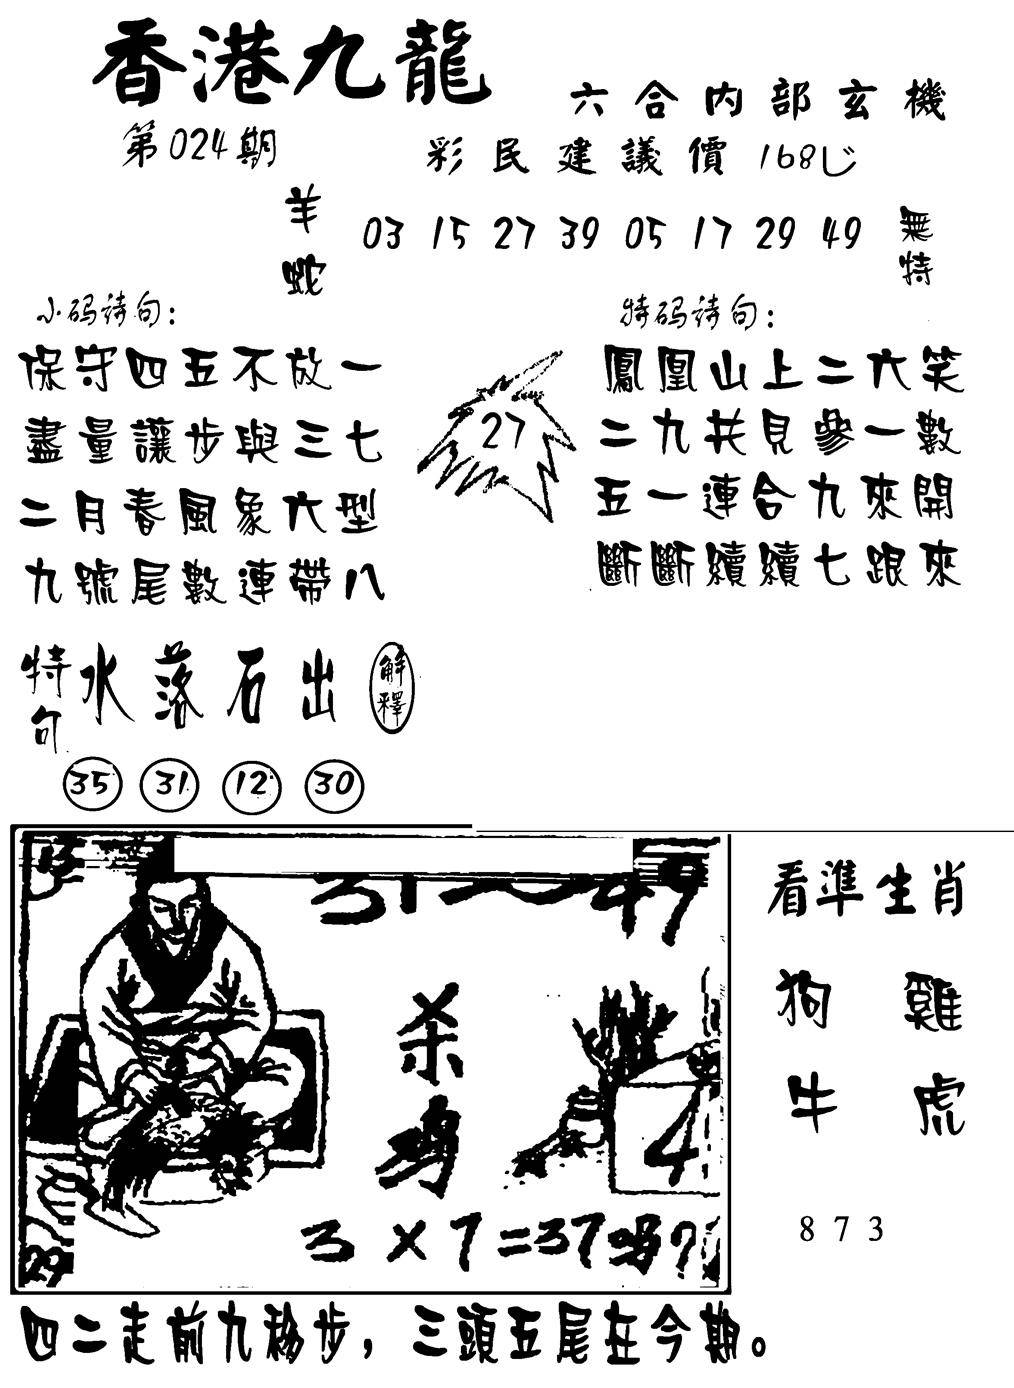 香港九龍
六合内部玄機
第024期
彩民建議價168じ
羊
蛇
03 15 27 39 05 17 29 49
無特
小码诗句：
保守四五不放一
盡量讓步與三七
二月春風象六型
九號尾數連帶八
27
特码诗句：
鳳凰山上二六笑
二九共見參一數
五一連合九來開
斷斷續續七跟來
特句
水落石出
解釋
35 31 12 30
杀
鸡
4
3×7=37吗?
29
看準生肖
狗 雞
牛 虎
873
四二走前九移步，三頭五尾在今期。